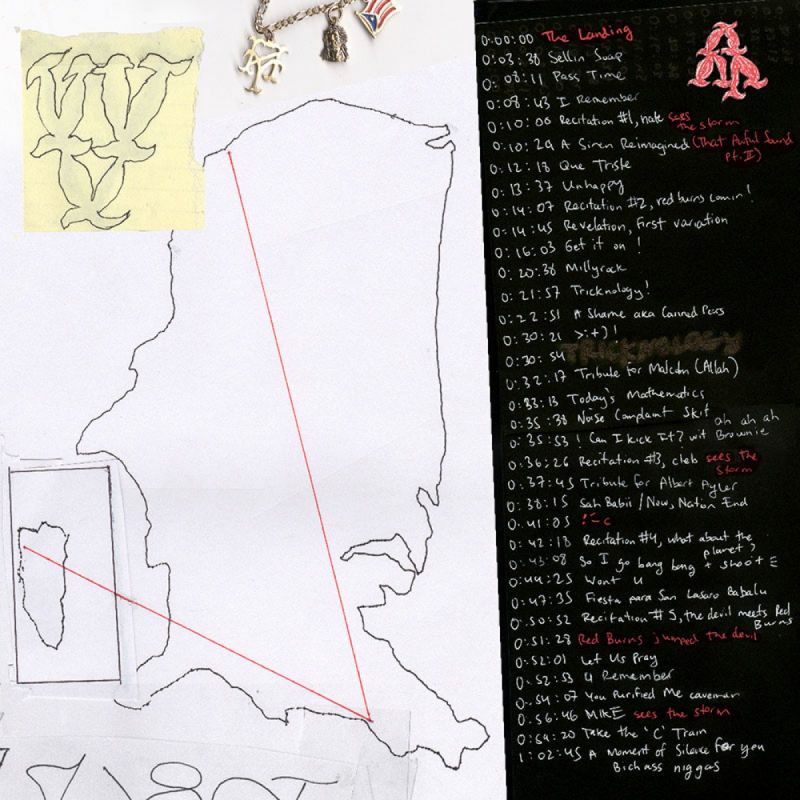 0:00:00 The Landing
0:03:38 Sellin Soap
0:08:11 Pass Time
0:08:43 I Remember
0:10:06 Recitation #1, nak sees the storm
0:10:29 A Siren Reimagined (That Awful Sound pt. II)
0:12:18 Que Triste
0:13:37 Unhappy
0:14:07 Recitation #2, red burns comin!
0:14:45 Revelation, first variation
0:16:03 Get it on !
0:20:38 Millyrock
0:21:57 Tricknology!
0:22:51 A Shame aka Canned Peas
0:30:21 >:+)!
0:30:54 TRICKNOLOGY
0:32:17 Tribute for Malcolm (Allah)
0:33:13 Today's Mathematics
0:35:38 Noise Complaint Skit
0:35:53 ! Can I kick It? wit Brownie ah ah ah
0:36:26 Recitation #3, cleb sees the storm
0:37:45 Tribute for Albert Ayler
0:38:15 Sah Babii / Now, Nation End
0:41:05 !-c
0:42:18 Recitation #4, what about the planet?
0:43:08 So I go bang bang + shoot E
0:44:25 Wont U
0:47:35 Fiesta para San Lasaro Babalu
0:50:52 Recitation #5, the devil meets Red Burns
0:51:28 Red Burns jumped the devil
0:52:01 Let Us Pray
0:52:53 U Remember
0:54:07 You Purified Me caveman
0:56:46 MIKE sees the storm
0:59:20 Take the 'C' Train
1:02:45 A Moment of Silence for you Bichass niggas